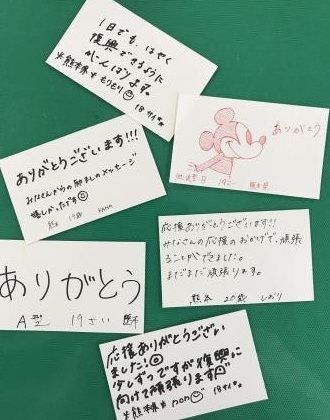 1日でも、はやく
復興できるように
がんばります。
※熊本県※ もりもり 18才
ありがとう
ありがとうございます!!!
みなさんからの励ましのメッセージ
嬉しかったです
19歳 KANA
応援ありがとうございます!!
みなさんの応援のおかげで、頑張
ることができました。
まだまだ頑張ります。
熊本 20歳 しおり
ありがとう
A型 19さい
応援ありがとうござい
ました!
少しずつですが復興に
向けて頑張ります
※熊本県※ pon 18才